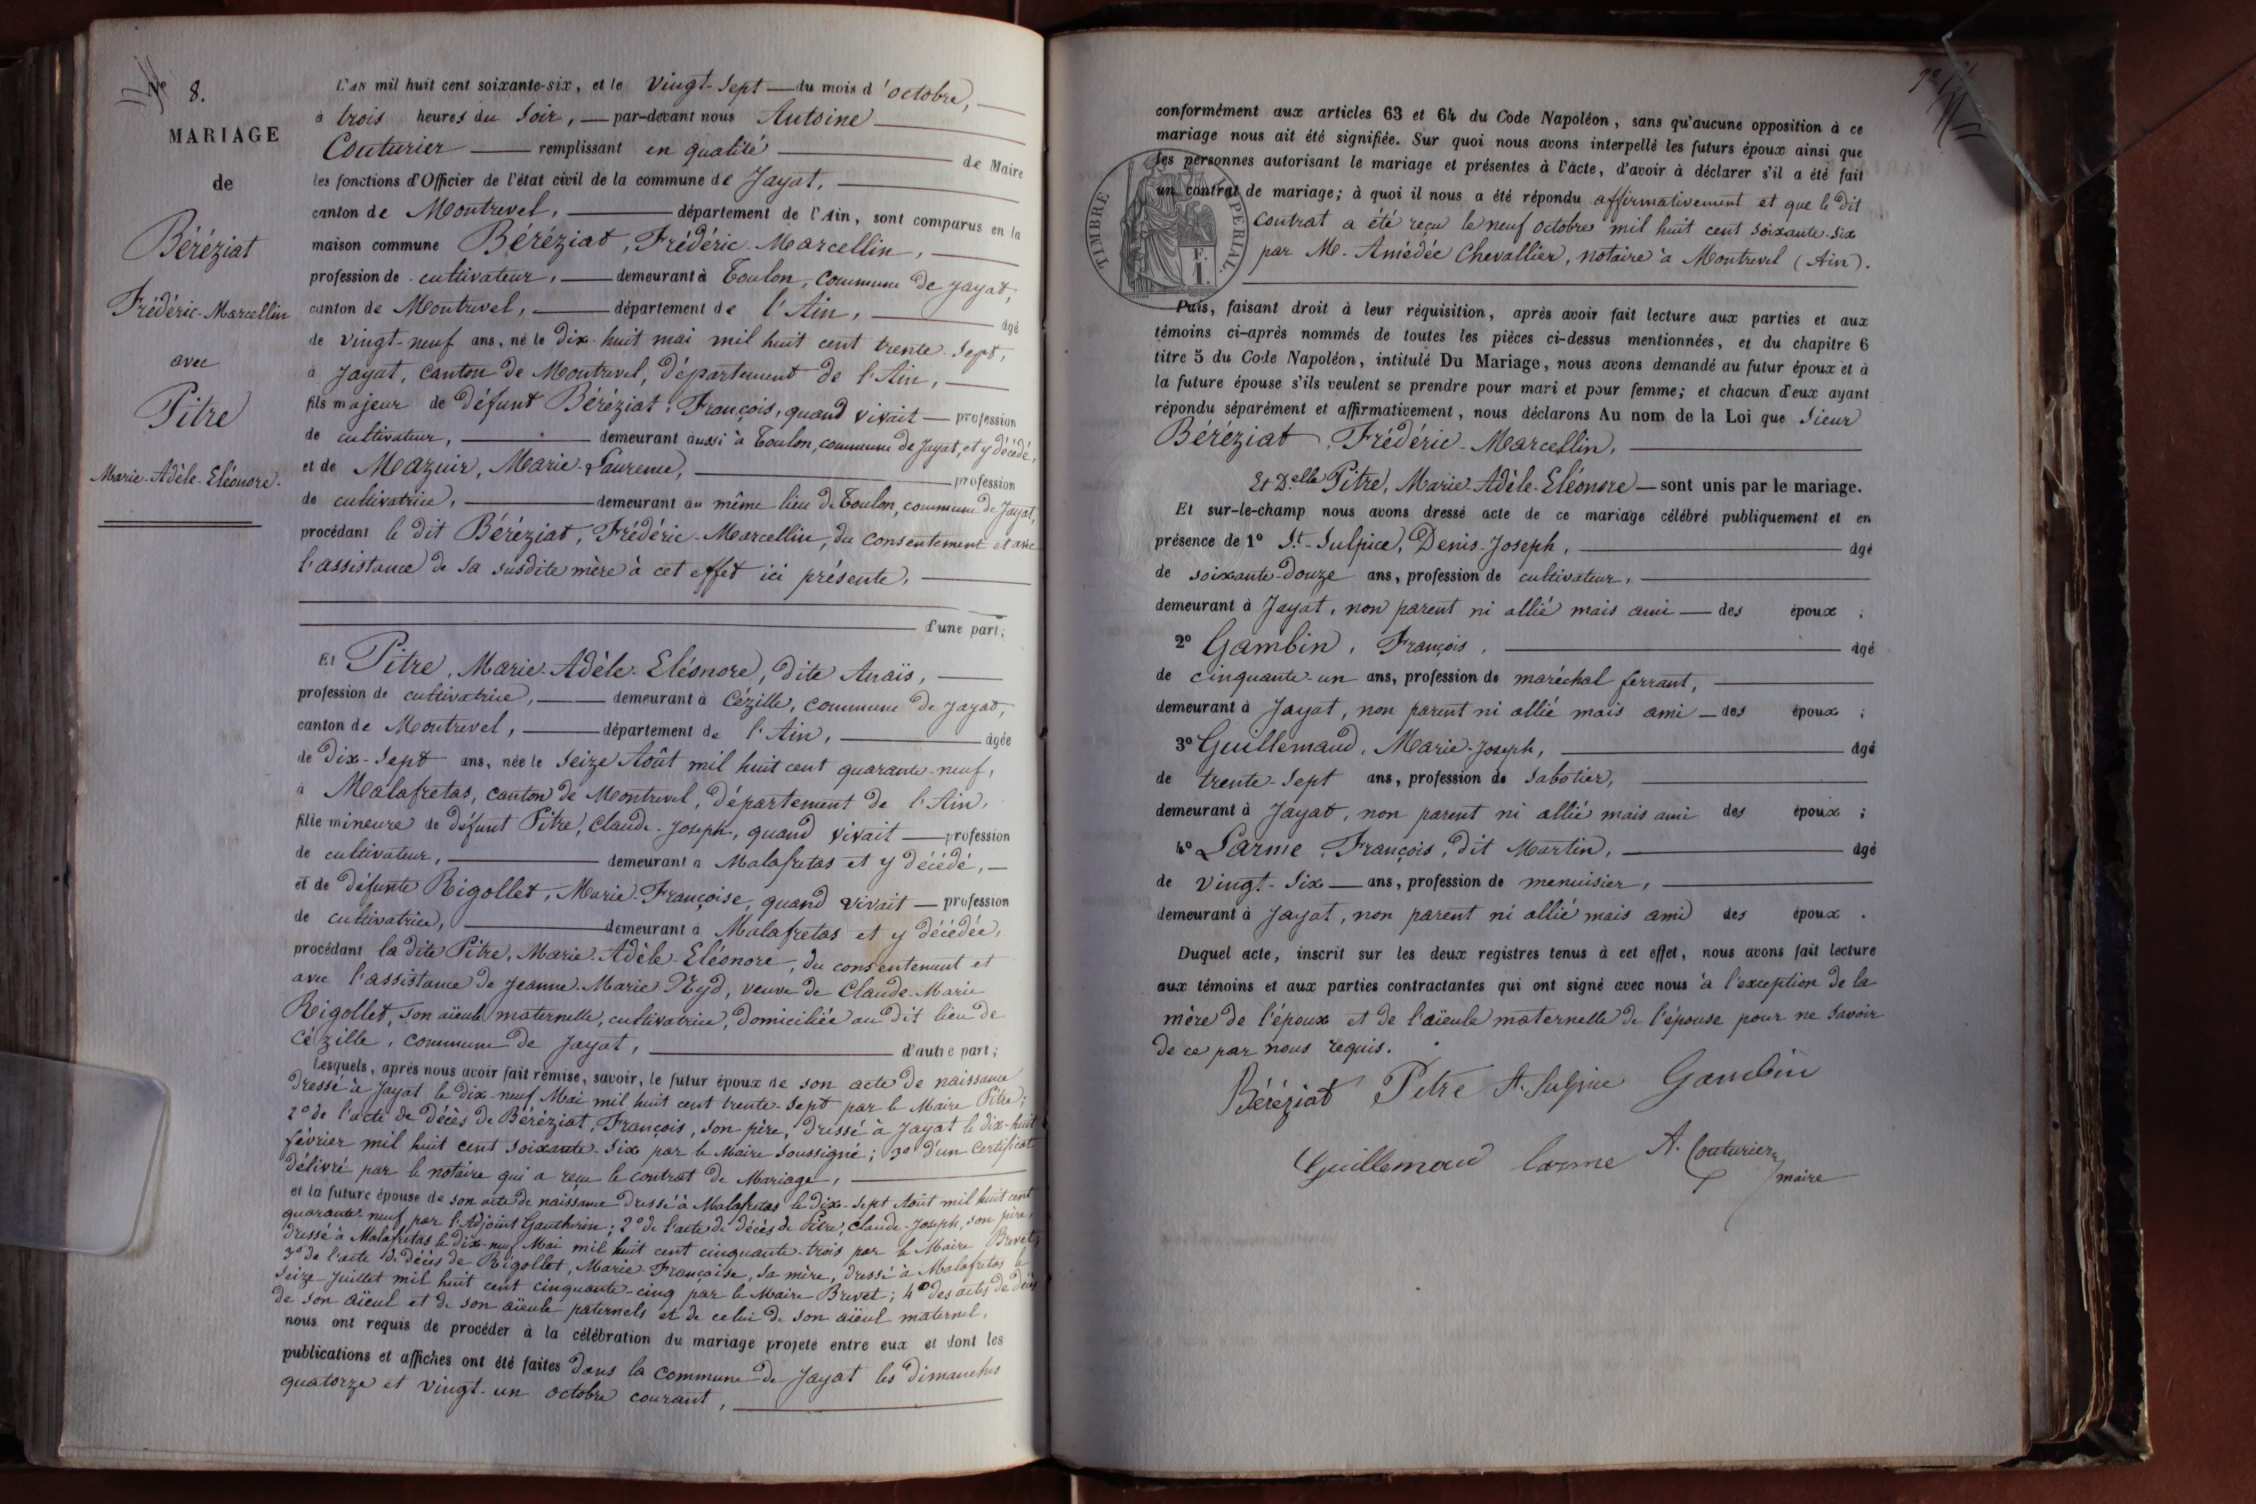 No 8.
MARIAGE
de
Béréziat
Frédéric-Marcellin
avec
Pitre
Marie-Adèle-Eléonore.
L'AN mil huit cent soixante-six, et le vingt-sept du mois d'octobre,
à trois heures du soir, par-devant nous Antoine
Couturier remplissant en qualité de Maire
les fonctions d'Officier de l'état civil de la commune de Jayat,
canton de Montrevel, département de l'Ain, sont comparus en la
maison commune Béréziat, Frédéric-Marcellin,
profession de cultivateur, demeurant à Toulon, commune de Jayat,
canton de Montrevel, département de l'Ain, âgé
de vingt-neuf ans, né le dix-huit mai mil huit cent trente-sept,
à Jayat, canton de Montrevel, département de l'Ain,
fils majeur de défunt Béréziat, François, quand vivait profession
de cultivateur, demeurant aussi à Toulon, commune de Jayat, et y décédé,
et de Mazuir, Marie-Laurence, profession
de cultivatrice, demeurant au même lieu de Toulon, commune de Jayat,
procédant le dit Béréziat, Frédéric-Marcellin, du consentement et avec
l'assistance de sa susdite mère à cet effet ici présente,
d'une part;
Et Pitre, Marie-Adèle-Eléonore, dite Anaïs,
profession de cultivatrice, demeurant à Cézille, commune de Jayat,
canton de Montrevel, département de l'Ain, âgée
de dix-sept ans, née le seize Août mil huit cent quarante-neuf,
à Malafretas, canton de Montrevel, département de l'Ain,
fille mineure de défunt Pitre, Claude-Joseph, quand vivait profession
de cultivateur, demeurant à Malafretas et y décédé,
et de défunte Rigollet, Marie-Françoise, quand vivait profession
de cultivatrice, demeurant à Malafretas et y décédée,
procédant la dite Pitre, Marie-Adèle-Eléonore, du consentement et
avec l'assistance de Jeanne-Marie Neyd, veuve de Claude-Marie
Rigollet, son aïeule maternelle, cultivatrice, domiciliée au dit lieu de
Cézille, commune de Jayat, d'autre part;
Lesquels, après nous avoir fait remise, savoir, le futur époux de son acte de naissance
dressé à Jayat le dix-neuf Mai mil huit cent trente-sept par le Maire Pitre;
2º de l'acte de décès de Béréziat, François, son père, dressé à Jayat le dix-huit
février mil huit cent soixante-six par le Maire soussigné; 3º d'un certificat
délivré par le notaire qui a reçu le contrat de Mariage,
et la future épouse de son acte de naissance dressé à Malafretas le dix-sept Août mil huit cent
quarante-neuf par l'Adjoint Gautherin; 2º de l'acte de décès de Pitre, Claude-Joseph, son père,
dressé à Malafretas le dix-neuf Mai mil huit cent cinquante-trois par le Maire Brevet;
3º de l'acte de décès de Rigollet, Marie Françoise, sa mère, dressé à Malafretas le
seize Juillet mil huit cent cinquante-cinq par le Maire Brevet; 4º des actes de décès
de son aïeul et de son aïeule paternels et de celui de son aïeul maternel,
nous ont requis de procéder à la célébration du mariage projeté entre eux et dont les
publications et affiches ont été faites dans la commune de Jayat les dimanches
quatorze et vingt-un octobre courant,
conformément aux articles 63 et 64 du Code Napoléon, sans qu'aucune opposition à ce
mariage nous ait été signifiée. Sur quoi nous avons interpellé les futurs époux ainsi que
les personnes autorisant le mariage et présentes à l'acte, d'avoir à déclarer s'il a été fait
un contrat de mariage; à quoi il nous a été répondu affirmativement et que le dit
contrat a été reçu le neuf octobre mil huit cent soixante-six
par M. Amédée Chevallier, notaire à Montrevel (Ain).
TIMBRE IMPERIAL
F.
1.
Puis, faisant droit à leur réquisition, après avoir fait lecture aux parties et aux
témoins ci-après nommés de toutes les pièces ci-dessus mentionnées, et du chapitre 6
titre 5 du Code Napoléon, intitulé Du Mariage, nous avons demandé au futur époux et à
la future épouse s'ils veulent se prendre pour mari et pour femme; et chacun d'eux ayant
répondu séparément et affirmativement, nous déclarons Au nom de la Loi que Sieur
Béréziat, Frédéric-Marcellin,
Et Delle Pitre, Marie-Adèle-Eléonore sont unis par le mariage.
Et sur-le-champ nous avons dressé acte de ce mariage célébré publiquement et en
présence de 1º St-Sulpice, Denis-Joseph, âgé
de soixante-douze ans, profession de cultivateur,
demeurant à Jayat, non parent ni allié mais ami des époux;
2º Gambin, François, âgé
de cinquante-un ans, profession de maréchal ferrant,
demeurant à Jayat, non parent ni allié mais ami des époux;
3º Guillemaud, Marie-Joseph, âgé
de trente-sept ans, profession de sabotier,
demeurant à Jayat, non parent ni allié mais ami des époux;
4º Larme, François, dit Martin, âgé
de vingt-six ans, profession de menuisier,
demeurant à Jayat, non parent ni allié mais ami des époux.
Duquel acte, inscrit sur les deux registres tenus à cet effet, nous avons fait lecture
aux témoins et aux parties contractantes qui ont signé avec nous à l'exception de la
mère de l'époux et de l'aïeule maternelle de l'épouse pour ne savoir
de ce par nous requis.
Béréziat Pitre St-Sulpice Gambin
Guillemaud Larme A. Couturier
maire